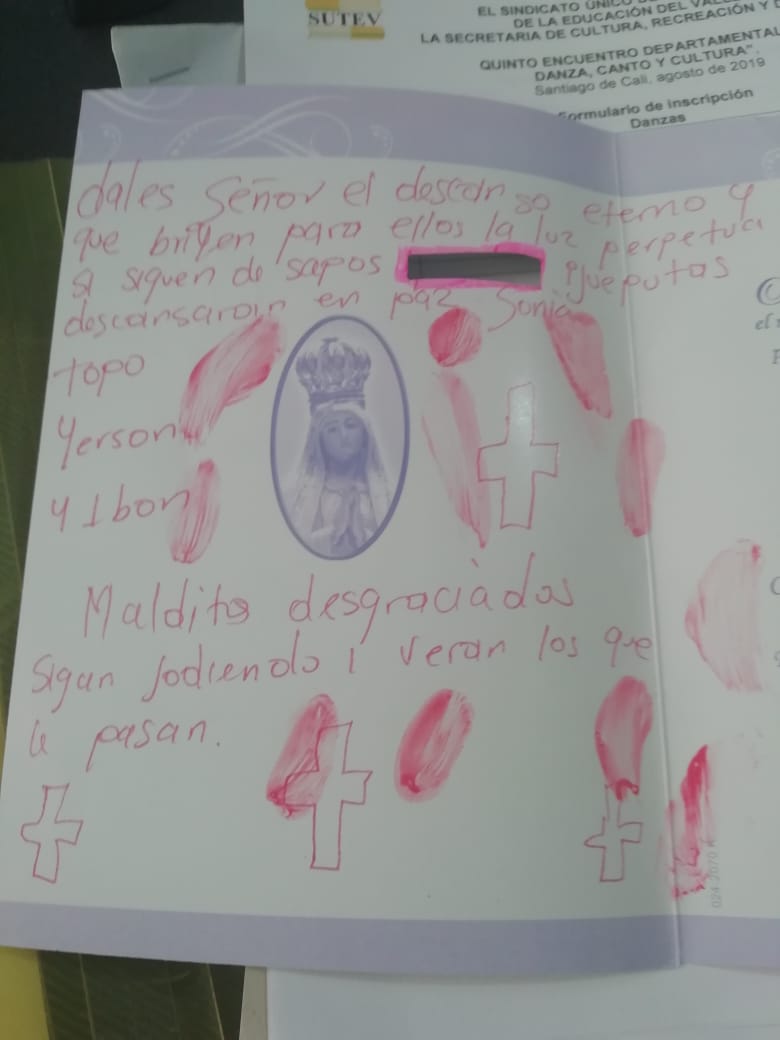 SUTEV
EL SINDICATO ÚNICO DE
DE LA EDUCACIÓN DEL VAL
LA SECRETARIA DE CULTURA, RECREACIÓN Y D
QUINTO ENCUENTRO DEPARTAMENTAL
DANZA, CANTO Y CULTURA".
Santiago de Cali, agosto de 2019
Formulario de inscripción
Danzas
dales Señor el descanso eterno y
que brillen para ellos la luz perpetua
si siguen de sapos
descansaroin en paz Sonia
topo
Yerson
y Ibon
Maldito desgraciados
sigan jodiendo i veran los que
le pasan.
el
024 2070